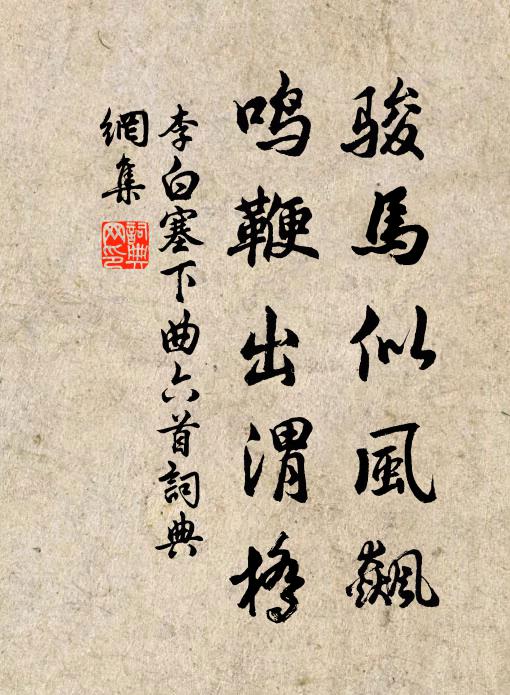 骏馬似風飆
鸣鞭出渭橋
李白塞下曲六首詞典
網集
詞典
网印